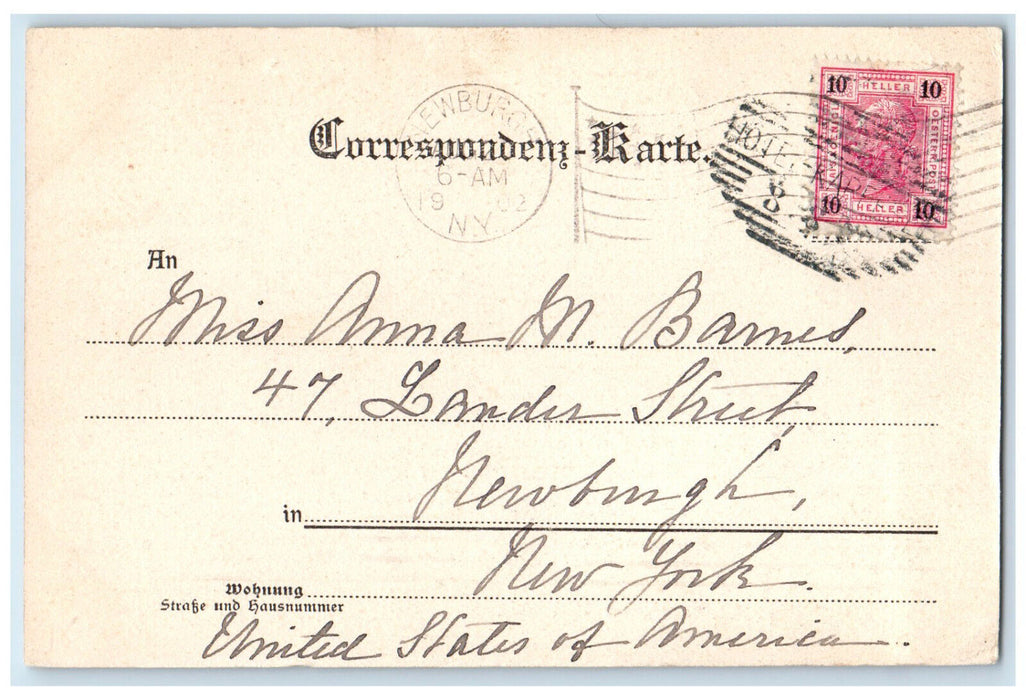 NEWBURGH
6-AM
19 02
N.Y.
Correspondenz-Karte.
10 HELLER 10
OESTERR. POST
10 HELLER 10
HOTEL
An
Miss Anna M. Barnes,
47, Lander Street,
Newburgh,
in
New York.
Wohnung
Straße und Hausnummer
United States of America.